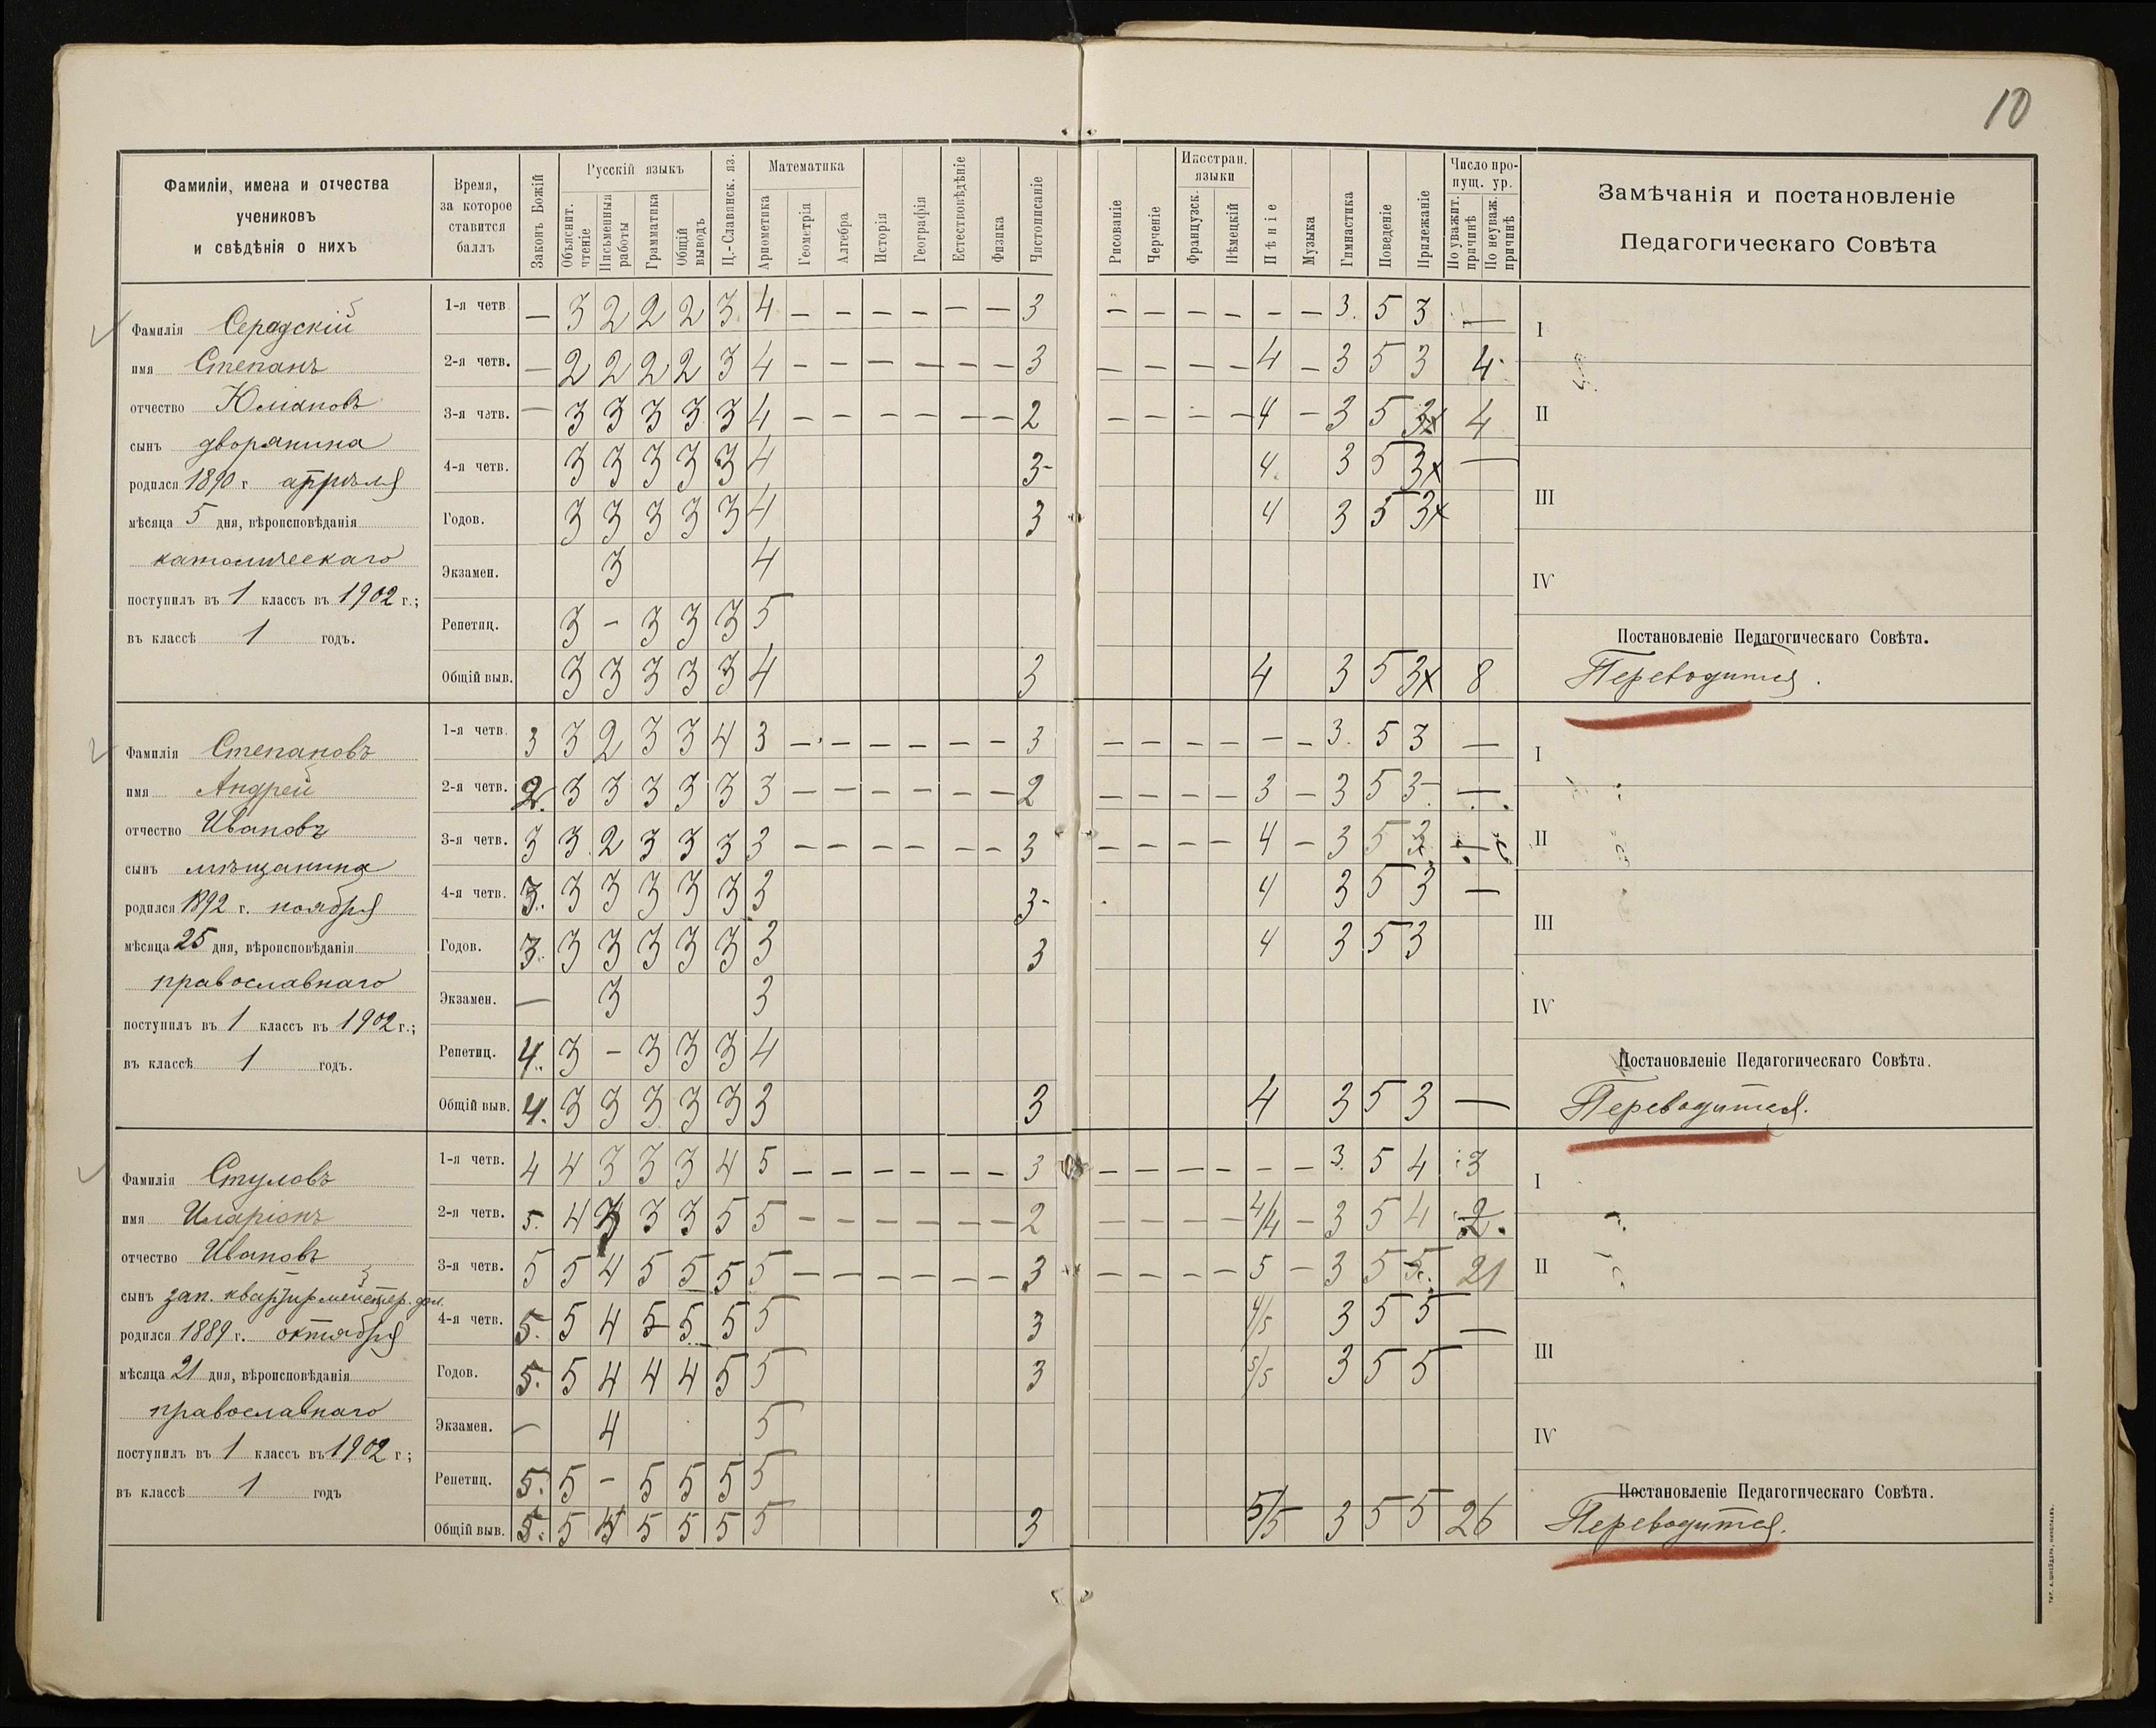 10
Фамиліи, имена и отчества
учениковъ
и свѣдѣнія о нихъ
Время,
за которое
ставится
баллъ
Законъ Божій
Русскій языкъ
Объяснит.
чтеніе
Письменныя
работы
Грамматика
Общій
выводъ
Ц.-Славянск. яз.
Математика
Ариѳметика
Геометрія
Алгебра
Исторія
Географія
Естествовѣдѣніе
Физика
Чистописаніе
Рисованіе
Черченіе
Иностран.
языки
Французск.
Нѣмецкій
Пѣніе
Музыка
Гимнастика
Поведеніе
Прилежаніе
Число про-
пущ. ур.
По уважит.
причинѣ
По неуваж.
причинѣ
Замѣчанія и постановленіе
Педагогическаго Совѣта
Фамилія Серадскій
имя Степанъ
отчество Юліановъ
сынъ дворянина
родился 1890 г апрѣля
мѣсяца 5 дня, вѣроисповѣданія
католическаго
поступилъ въ 1 классъ въ 1902 г.;
въ классѣ 1 годъ.
1-я четв — 3 2 2 2 3 4 — — — — — — 3 — — — — — — 3. 5 3 —
2-я четв. — 2 2 2 2 3 4 — — — — — — 3 — — — — 4 — 3 5 3 4
3-я четв. — 3 3 3 3 3 4 — — — — — — 2 — — — — 4 — 3 5 3x 4
4-я четв. 3 3 3 3 3 4 3- 4. 3 5 3x —
Годов. 3 3 3 3 3 4 3 4 3 5 3x
Экзамен. 3 4
Репетиц. 3 — 3 3 3 5
Общій выв. 3 3 3 3 3 4 3 4 3 5 3x 8
I
II
III
IV
Постановленіе Педагогическаго Совѣта.
Переводится.
Фамилія Степановъ
имя Андрей
отчество Ивановъ
сынъ мѣщанина
родился 1892 г. ноября
мѣсяца 25 дня, вѣроисповѣданія
православнаго
поступилъ въ 1 классъ въ 1902 г.;
въ классѣ 1 годъ.
1-я четв. 3 3 2 3 3 4 3 — — — — — — 3 — — — — — — 3. 5 3 —
2-я четв. 2. 3 3 3 3 3 3 — — — — — — 2 — — — — 3 — 3 5 3 —
3-я четв. 3 3 2 3 3 3 3 — — — — — — 3 — — — — 4 — 3 5 3 —
4-я четв. 3. 3 3 3 3 3 3 3- 4 3 5 3 —
Годов. 3. 3 3 3 3 3 3 3 4 3 5 3
Экзамен. — 3 3
Репетиц. 4. 3 — 3 3 3 4
Общій выв. 4. 3 3 3 3 3 3 3 4 3 5 3 —
I
II
III
IV
Постановленіе Педагогическаго Совѣта.
Переводится.
Фамилія Стуловъ
имя Иларіонъ
отчество Ивановъ
сынъ зап. квартирмейстер.
родился 1889 г. октября
мѣсяца 21 дня, вѣроисповѣданія
православнаго
поступилъ въ 1 классъ въ 1902 г;
въ классѣ 1 годъ
1-я четв. 4 4 3 3 3 4 5 — — — — — — 3 — — — — — — 3. 5 4 3
2-я четв. 5. 4 3 3 5 5 — — — — — — 2 — — — — 4/4 — 3 5 4 2
3-я четв. 5 5 4 5 5 5 5 — — — — — — 3 — — — — 5 — 3 5 5 21
4-я четв. 5. 5 4 5 5 5 5 3 4/5 3 5 5 —
Годов. 5. 5 4 4 4 5 5 3 5/5 3 5 5
Экзамен. — 4 5
Репетиц. 5. 5 — 5 5 5 5
Общій выв. 5. 5 4 5 5 5 5 3 5/5 3 5 5 26
I
II
III
IV
Постановленіе Педагогическаго Совѣта.
Переводится.